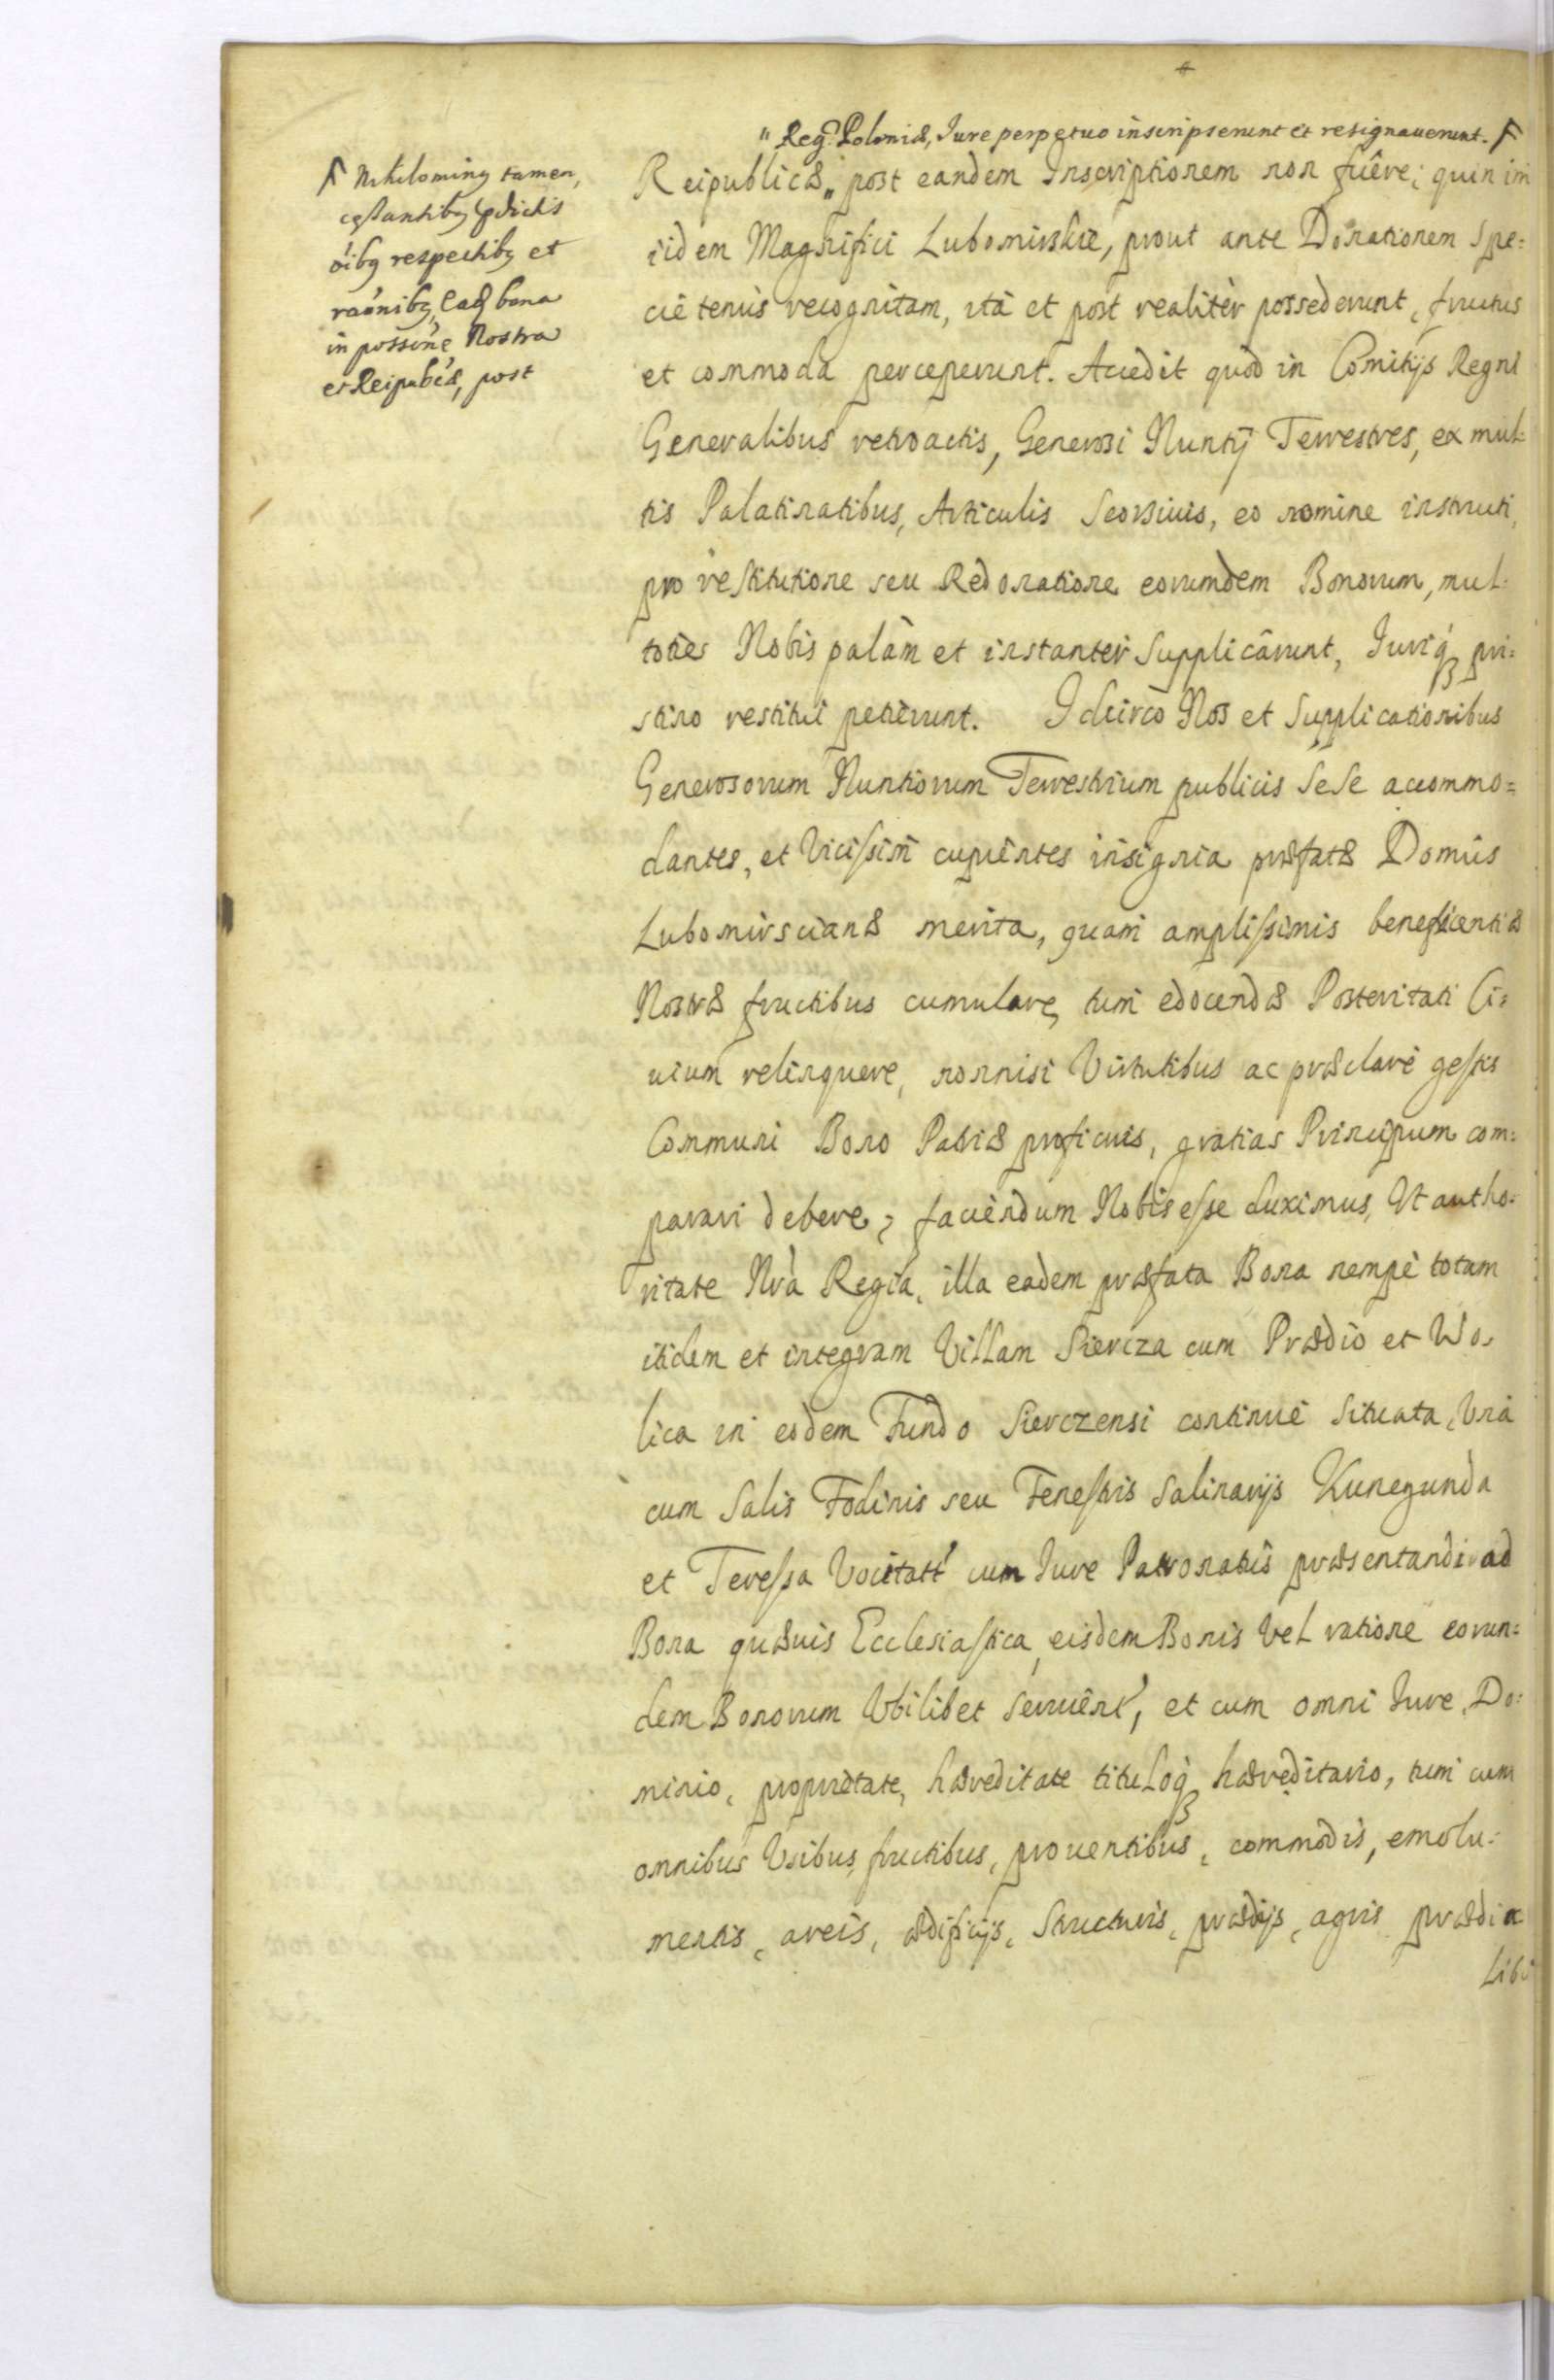 " Reg: Poloniæ, Jure perpetuo inscripserunt et resignauerunt. Ѧ
Ѧ Nihilominq tamen,
cessantibq pdictis
oibq respectibq et
raõnibq, eadẽ bona
in possone Nostra
et Reipubcæ, post
Reipublicæ „ post eandem Inscriptionem non fuêre; quin im
iidem Magnifici Lubomirskie, prout ante Donationem spe:
ciè tenùs recognitam, ità et post realitèr possederunt, fructus
et commoda perceperunt. Accedit quòd in Comitijs Regni
Generalibus retroactis, Generosi Nuntÿ Terrestres, ex mul:
tis Palatinatibus, Articulis Seorsiuis, eo nomine instructi,
pro restitutione seu Redonatione eorumdem Bonorum, mul:
toties Nobis palàm et instanter Supplicârunt, Juriq₃ pri:
stino restitui petierunt. Idcirco Nos et Supplicationibus
Generosorum Nuntiorum Terrestrium publicis Sese accommo=
dantes, et Vicissim cupientes insignia præfatæ Domûs
Lubomirscianæ merita, quam amplissimis beneficentiæ
Nostræ fructibus cumulare, tum edocendæ Posteritati Ci:
uium relinquere, nonnisi Virtutibus ac præclarè gestis
Communi Bono Patriæ proficuis, gratias Principum com:
parari debere; faciendum Nobis esse duximus, Ut autho:
ritate Nrà Regià, illa eadem præfata Bona nempè totam
itidem et integram Villam Siercza cum Prædio et Wo:
lica in eodem Fundo Sierczensi continuè Situata, Unà
cum Salis Fodinis seu Fenestris Salinarijs Kunegunda
et Teressa Vocitatt' cum Jure Patronatûs præsentandi ad
Bona quæuis Ecclesiastica, eisdem Bonis Vel ratione eorun:
dem Bonorum Ubilibet Seruient', et cum omni Jure, Do:
minio, proprietate, hæreditate tituloq₃ hæreditario, tum cum
omnibus Usibus, fructibus, prouentibus, commodis, emolu:
mentis, areis, ædificijs, Structuris, prædijs, agris prædia
Lib